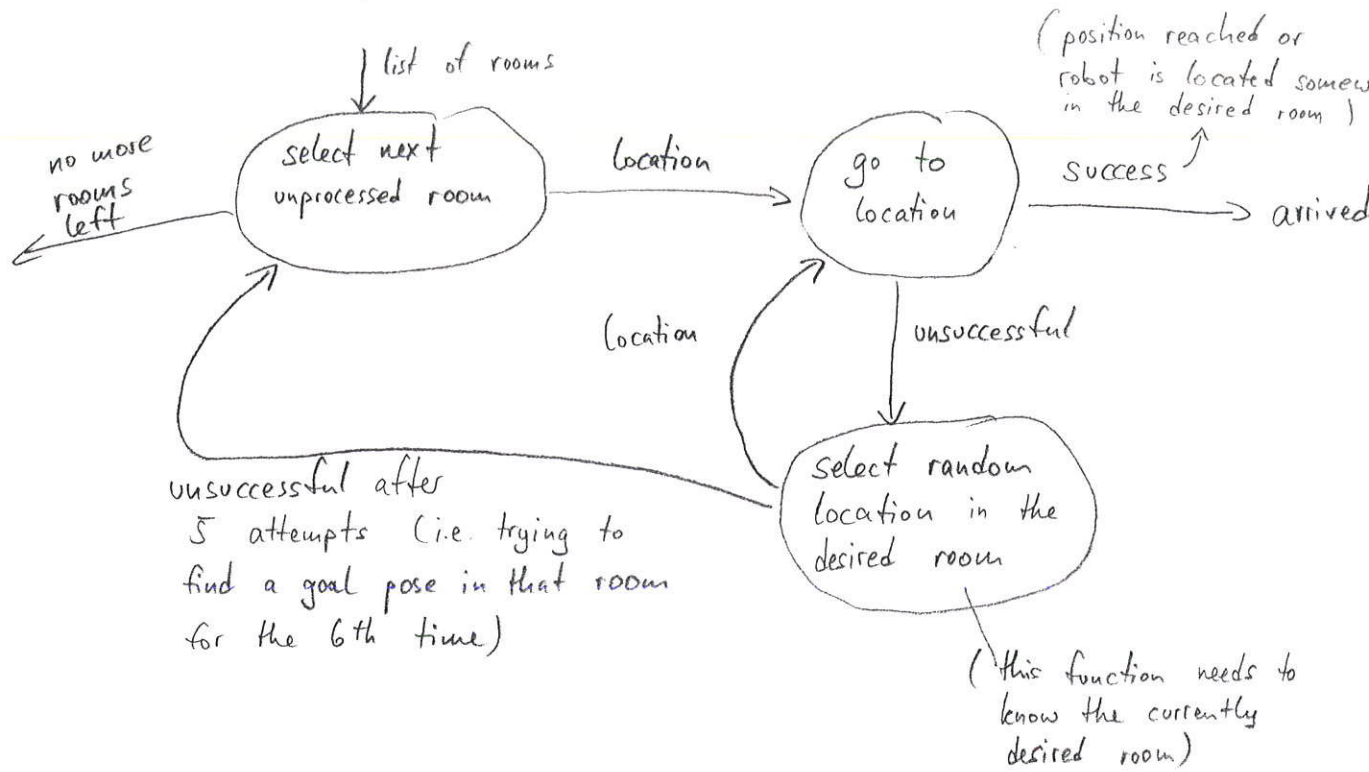 list of rooms
(position reached or
robot is located somew
in the desired room)
no more
rooms
left
select next
unprocessed room
location
go to
location
success
arrived
location
unsuccessful
unsuccessful after
5 attempts (i.e. trying to
find a goal pose in that room
for the 6th time)
select random
location in the
desired room
(this function needs to
know the currently
desired room)